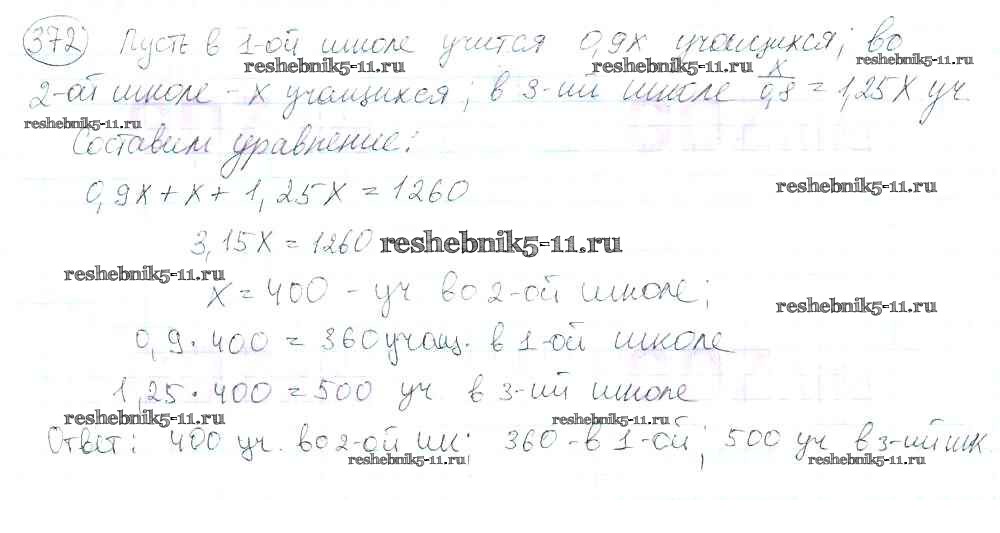 372 Пусть в 1-ой школе учится 0,9x учащихся; во
reshebnik5-11.ru reshebnik5-11.ru
2-ой школе - x учащихся; в 3-ий школе x/0,8 = 1,25x уч
reshebnik5-11.ru
Составим уравнение:
0,9x + x + 1,25x = 1260
reshebnik5-11.ru
3,15x = 1260
reshebnik5-11.ru
reshebnik5-11.ru
x = 400 - уч во 2-ой школе;
reshebnik5-11.ru
0,9 · 400 = 360 учащ. в 1-ой школе
1,25 · 400 = 500 уч в 3-ий школе
reshebnik5-11.ru reshebnik5-11.ru
Ответ: 400 уч. во 2-ой шк; 360 - в 1-ой; 500 уч в 3-ий шк
reshebnik5-11.ru reshebnik5-11.ru